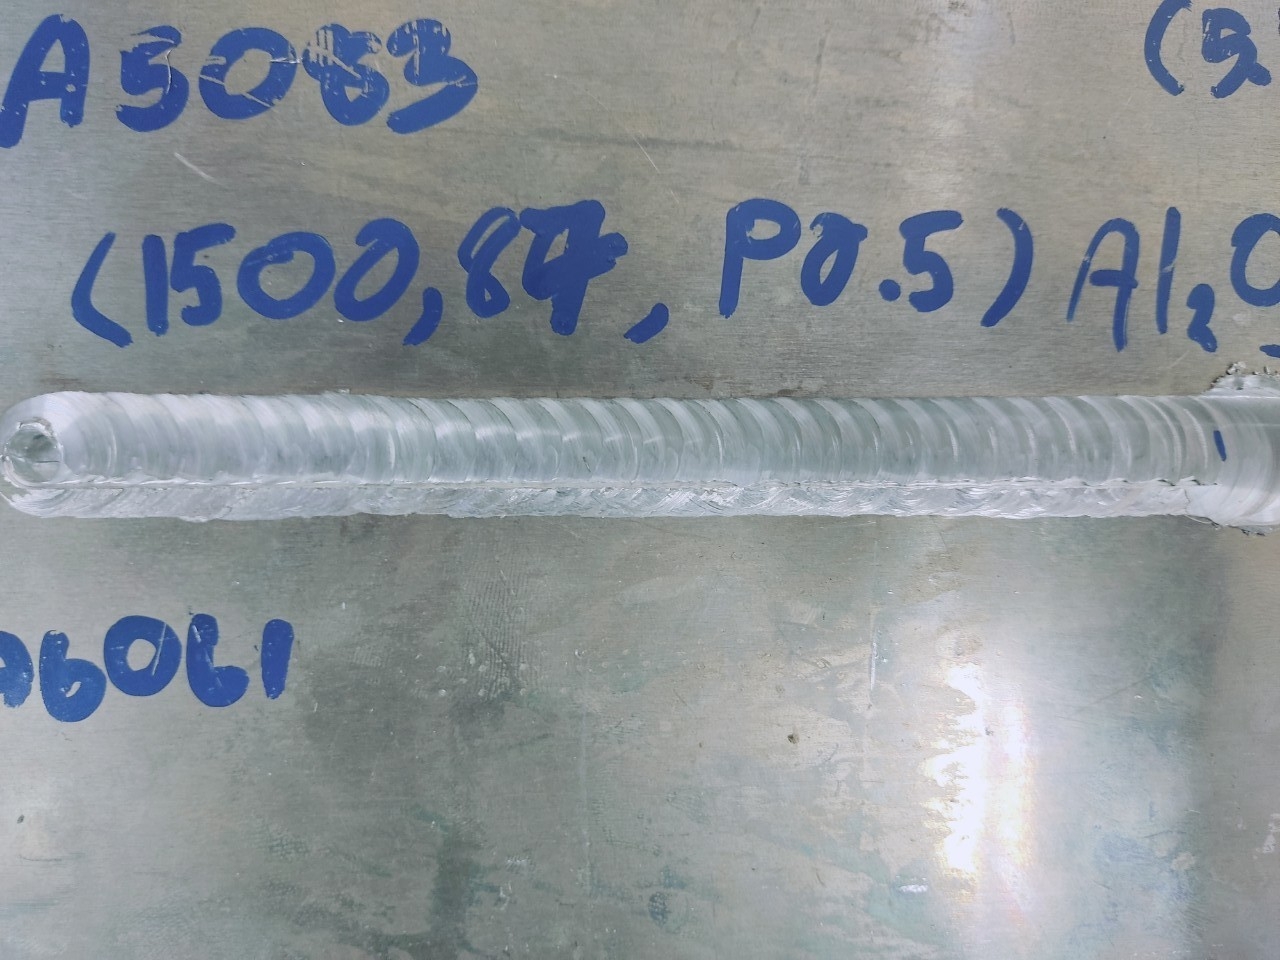 A5083 (5
(1500,87, P0.5) Al₂O
A6061